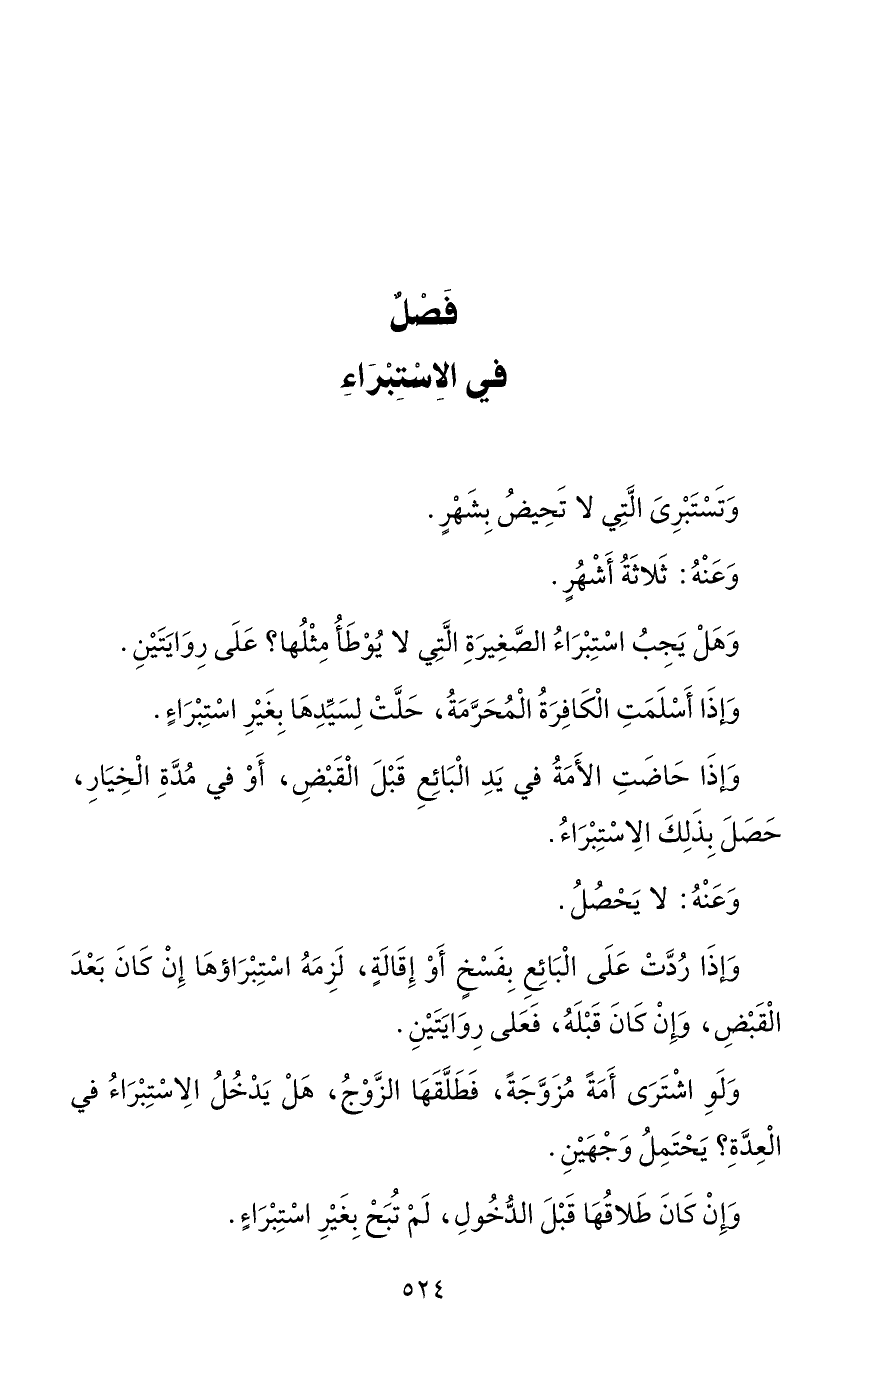 فَصْلٌ
في الِاسْتِبْرَاءِ
وَتَسْتَبْرِئَ الَّتِي لا تَحِيضُ بِشَهْرٍ .
وَعَنْهُ: ثَلاثَةُ أَشْهُرٍ .
وَهَلْ يَجِبُ اسْتِبْرَاءُ الصَّغِيرَةِ الَّتِي لا يُوْطَأُ مِثْلُها؟ عَلَى رِوَايَتَيْنِ .
وَإِذَا أَسْلَمَتِ الْكَافِرَةُ الْمُحَرَّمَةُ، حَلَّتْ لِسَيِّدِهَا بِغَيْرِ اسْتِبْرَاءٍ .
وَإِذَا حَاضَتِ الأَمَةُ في يَدِ الْبَائِعِ قَبْلَ الْقَبْضِ، أَوْ في مُدَّةِ الْخِيَارِ،
حَصَلَ بِذَلِكَ الِاسْتِبْرَاءُ .
وَعَنْهُ: لا يَحْصُلُ .
وَإِذَا رُدَّتْ عَلَى الْبَائِعِ بِفَسْخٍ أَوْ إِقَالَةٍ، لَزِمَهُ اسْتِبْرَاؤهَا إِنْ كَانَ بَعْدَ
الْقَبْضِ، وَإِنْ كَانَ قَبْلَهُ، فَعَلى رِوَايَتَيْنِ .
وَلَوِ اشْتَرَى أَمَةً مُزَوَّجَةً، فَطَلَّقَهَا الزَّوْجُ، هَلْ يَدْخُلُ الِاسْتِبْرَاءُ في
الْعِدَّةِ؟ يَحْتَمِلُ وَجْهَيْنِ .
وَإِنْ كَانَ طَلاقُهَا قَبْلَ الدُّخُولِ، لَمْ تُبَحْ بِغَيْرِ اسْتِبْرَاءٍ .
٥٢٤